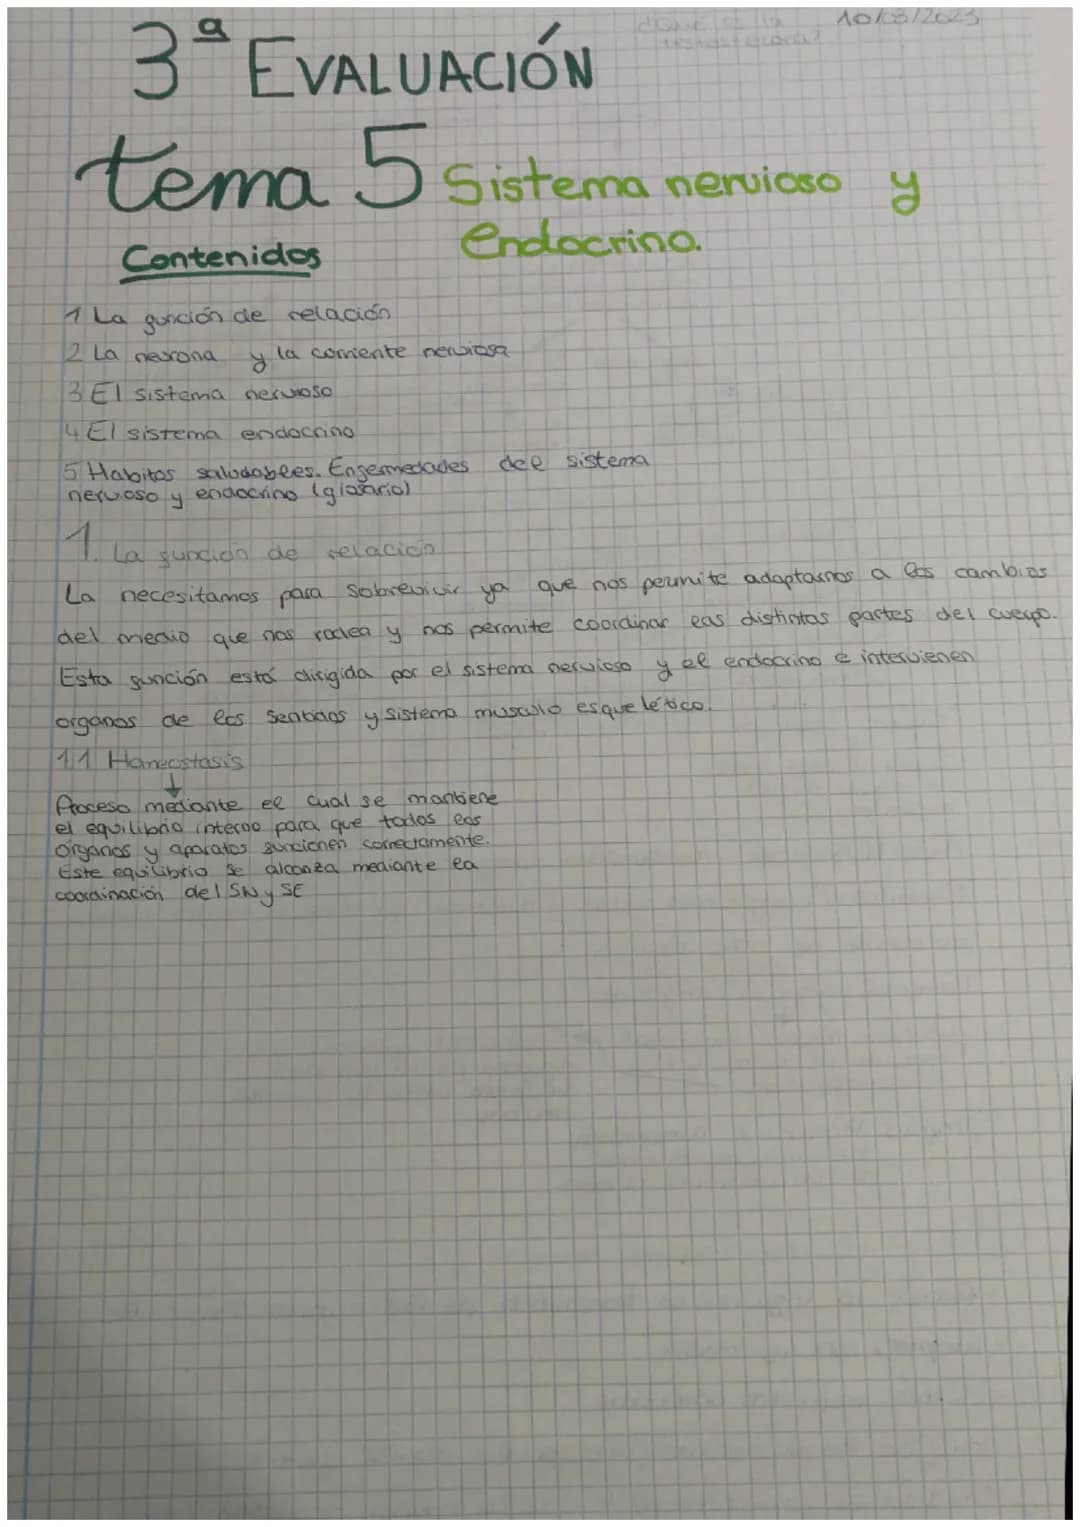 ¿Qué es la 10/03/2023
testosterona?
3ª EVALUACIÓN
tema 5 Sistema nervioso y
endocrino.
Contenidos
1 La función de relación
2 La neurona y la corriente nerviosa
3 El sistema nervioso
4 El sistema endocrino
5 Habitos saludables. Enfermedades del sistema
nervioso y endocrino (glosario)
1. La función de relación
La necesitamos para sobrevivir ya que nos permite adaptarnos a los cambios
del medio que nos rodea y nos permite coordinar las distintas partes del cuerpo.
Esta función está dirigida por el sistema nervioso y el endocrino e intervienen
organos de los sentidos y sistema musculo esquelético.
1.1 Homeostasis
↓
Proceso mediante el cual se mantiene
el equilibrio interno para que todos los
órganos y aparatos funcionen correctamente.
Este equilibrio se alcanza mediante la
coordinación del SN y SE